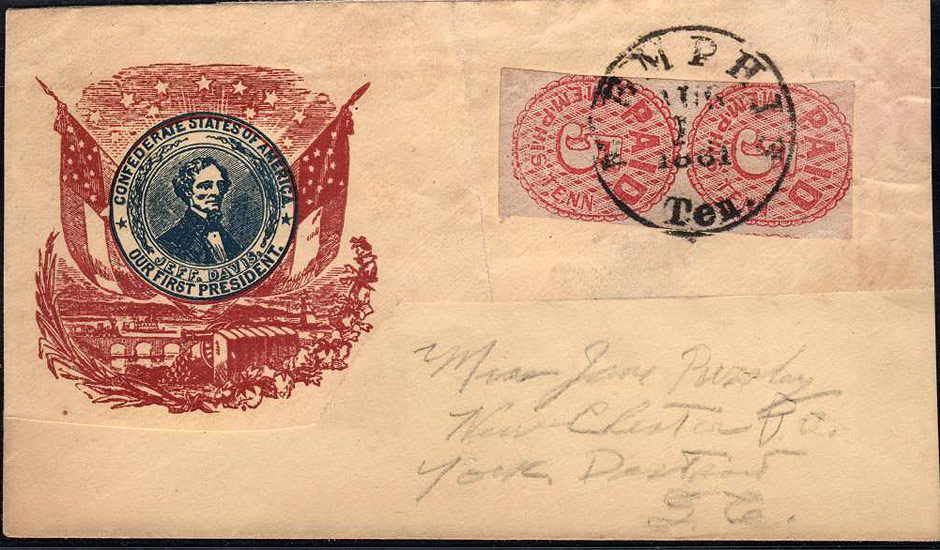 CONFEDERATE STATES OF AMERICA.
JEFF. DAVIS.
OUR FIRST PRESIDENT.
PAID
5
MEMPHIS TENN
PAID
5
MEMPHIS TE
MEMPHIS
AUG
1
1861
Ten.
Miss Jane
New Chester
York District